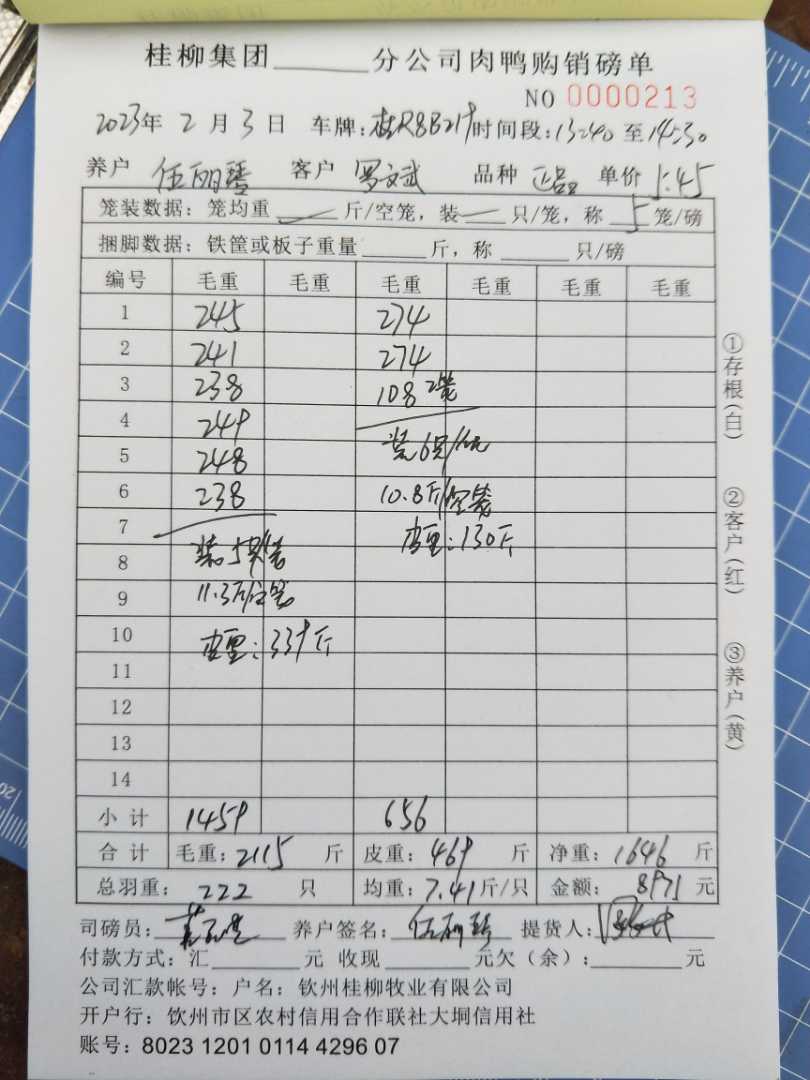 桂柳集团______分公司肉鸭购销磅单
NO 0000213
2023年 2 月 3 日 车牌:桂R8B219 时间段:13:40 至 14:30
养户 伍丽琴 客户 罗文武 品种 正品 单价 5.45
笼装数据: 笼均重 ／ 斤/空笼, 装 一 只/笼, 称 5 笼/磅
捆脚数据: 铁筐或板子重量______斤, 称______只/磅
编号 毛重 毛重 毛重 毛重 毛重 毛重
1 245 274
2 241 274
3 238 108 2笼
4 249
5 248 装6只/笼
6 238 10.8斤/空笼
7 皮重:130斤
8 装5只/笼
9 11.3斤/空笼
10 皮重:339斤
11
12
13
14
小计 1459 656
合计 毛重:2115 斤 皮重:469 斤 净重:1646 斤
总羽重: 222 只 均重:7.41斤/只 金额: 8971 元
司磅员: 养户签名: 伍丽琴 提货人:
付款方式: 汇______元 收现______元欠(余):______元
公司汇款帐号: 户名: 钦州桂柳牧业有限公司
开户行: 钦州市区农村信用合作联社大垌信用社
账号: 8023 1201 0114 4296 07
①存根(白)
②客户(红)
③养户(黄)